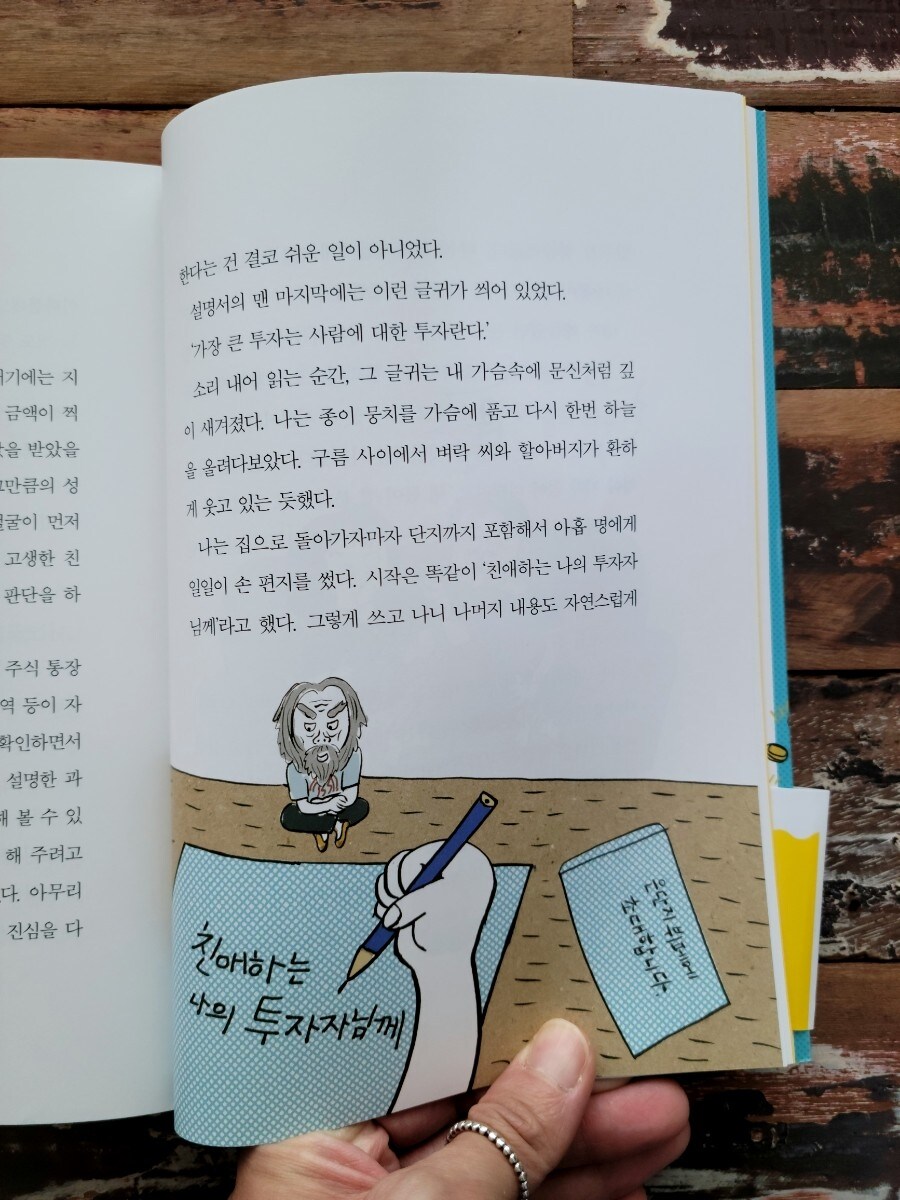 저기에는 지
금액이 찍
을 받았을
그만큼의 성
얼굴이 먼저
고생한 친
판단을 하
주식 통장
역 등이 자
확인하면서
설명한 과
해 볼 수 있
해 주려고
다. 아무리
진심을 다
한다는 건 결코 쉬운 일이 아니었다.
설명서의 맨 마지막에는 이런 글귀가 씌어 있었다.
‘가장 큰 투자는 사람에 대한 투자란다.’
소리 내어 읽는 순간, 그 글귀는 내 가슴속에 문신처럼 깊
이 새겨졌다. 나는 종이 뭉치를 가슴에 품고 다시 한번 하늘
을 올려다보았다. 구름 사이에서 벼락 씨와 할아버지가 환하
게 웃고 있는 듯했다.
나는 집으로 돌아가자마자 단지까지 포함해서 아홉 명에게
일일이 손 편지를 썼다. 시작은 똑같이 ‘친애하는 나의 투자자
님께’라고 했다. 그렇게 쓰고 나니 나머지 내용도 자연스럽게
친애하는
나의 투자자님께
은단지 뷔페에
초대합니다.